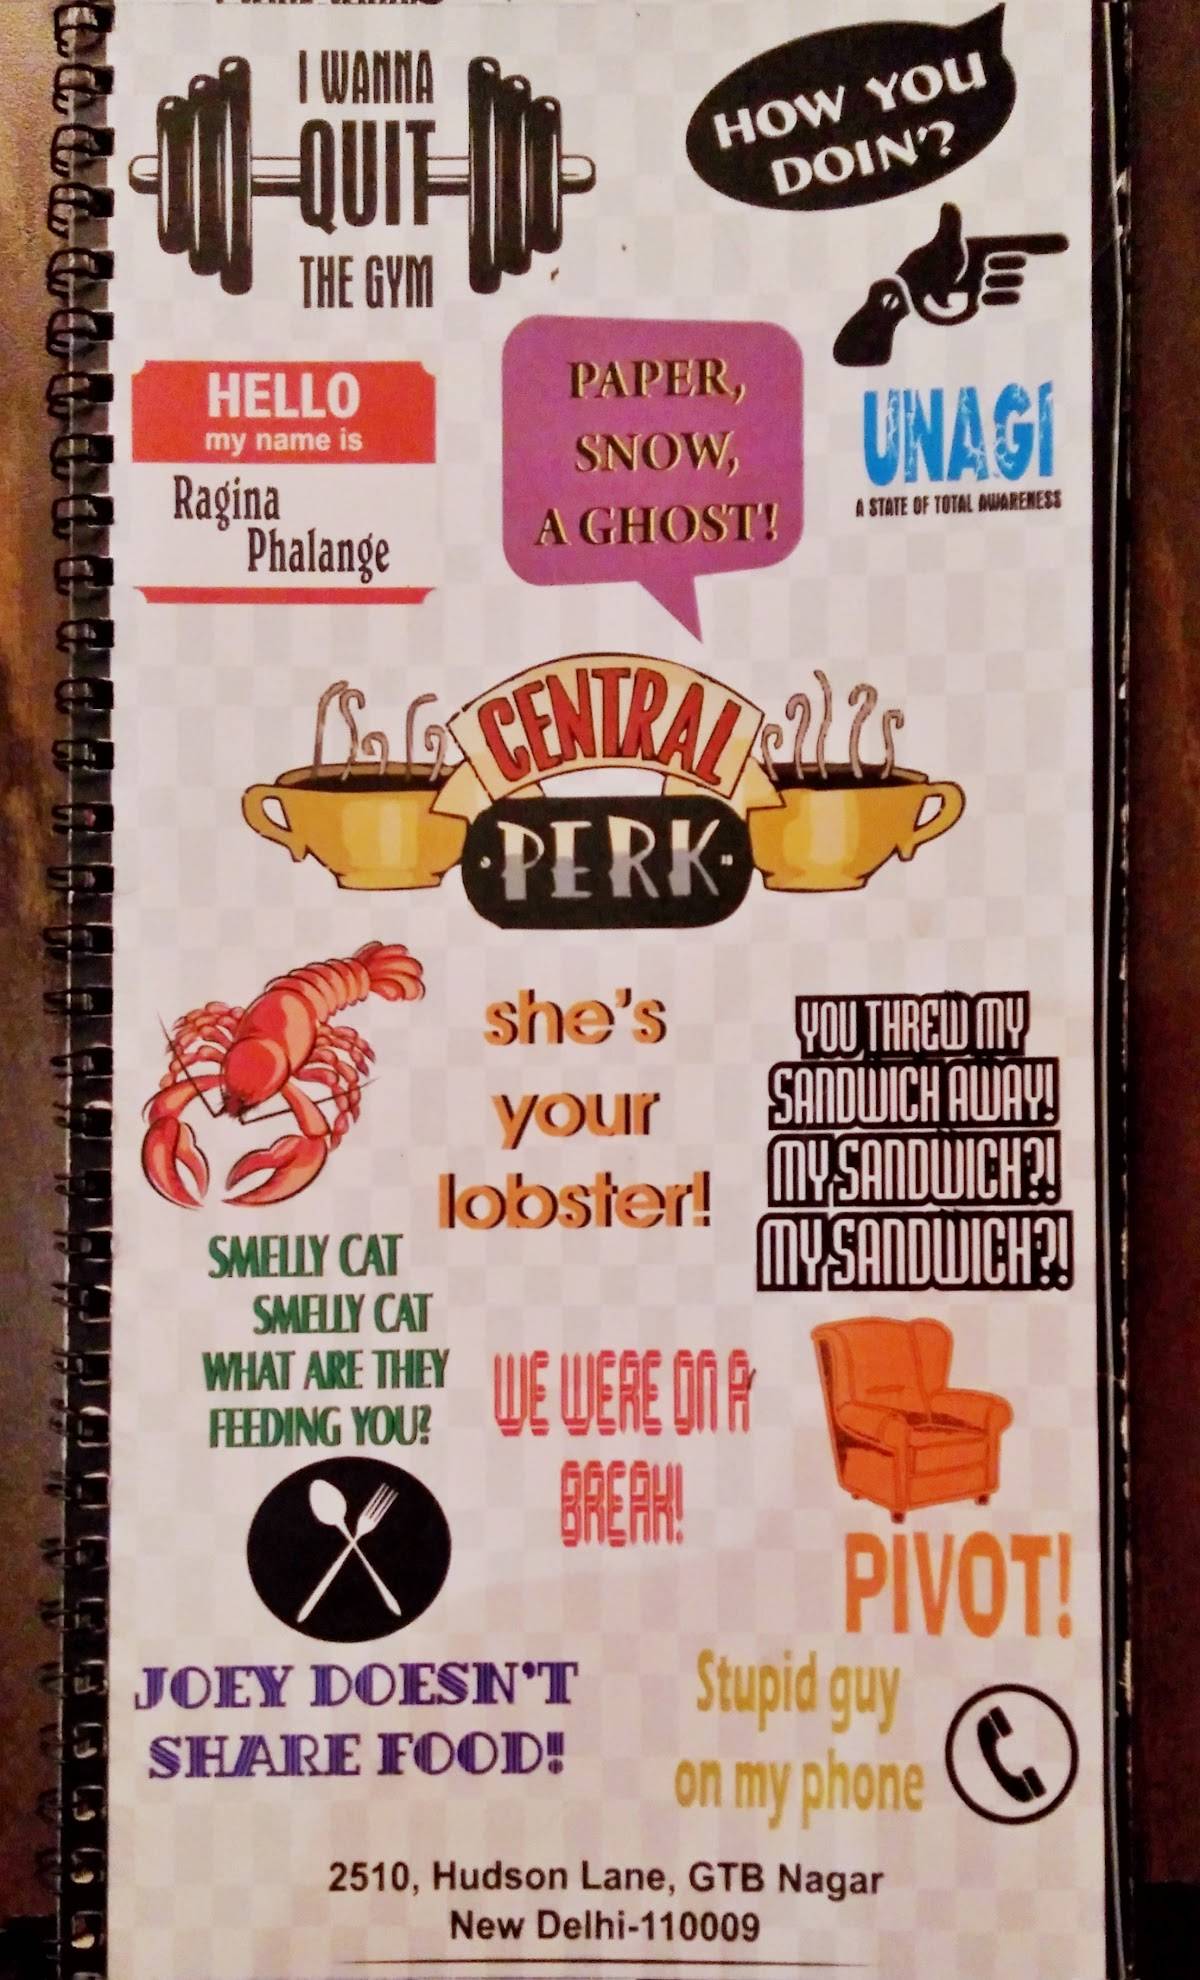 I WANNA
QUIT
THE GYM
HOW YOU
DOIN'?
HELLO
my name is
Ragina
Phalange
PAPER,
SNOW,
A GHOST!
UNAGI
A STATE OF TOTAL AWARENESS
CENTRAL
PERK
she's
your
lobster!
YOU THREW MY
SANDWICH AWAY!
MY SANDWICH?!
MY SANDWICH?!
SMELLY CAT
SMELLY CAT
WHAT ARE THEY
FEEDING YOU?
WE WERE ON A
BREAK!
PIVOT!
JOEY DOESN'T
SHARE FOOD!
Stupid guy
on my phone
2510, Hudson Lane, GTB Nagar
New Delhi-110009